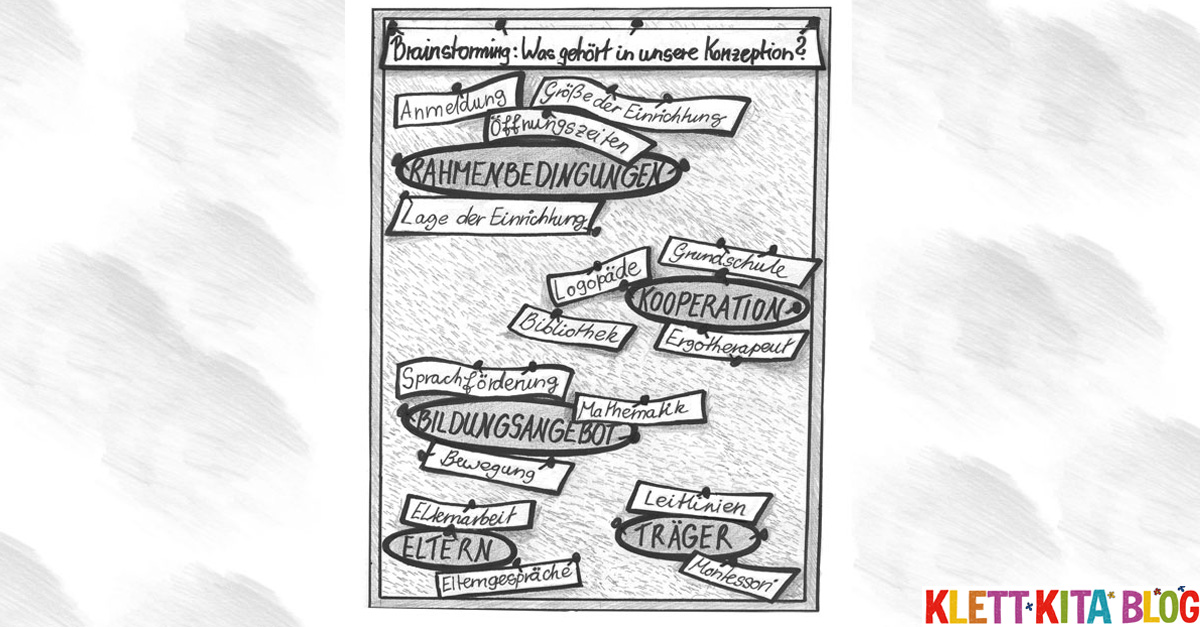 Brainstorming: Was gehört in unsere Konzeption?
Anmeldung
Größe der Einrichtung
Öffnungszeiten
RAHMENBEDINGUNGEN
Lage der Einrichtung
Grundschule
Logopäde
KOOPERATION
Bibliothek
Ergotherapeut
Sprachförderung
Mathematik
BILDUNGSANGEBOT
Bewegung
Elternarbeit
ELTERN
Elterngespräche
Leitlinien
TRÄGER
Montessori
KLETT KITA BLOG